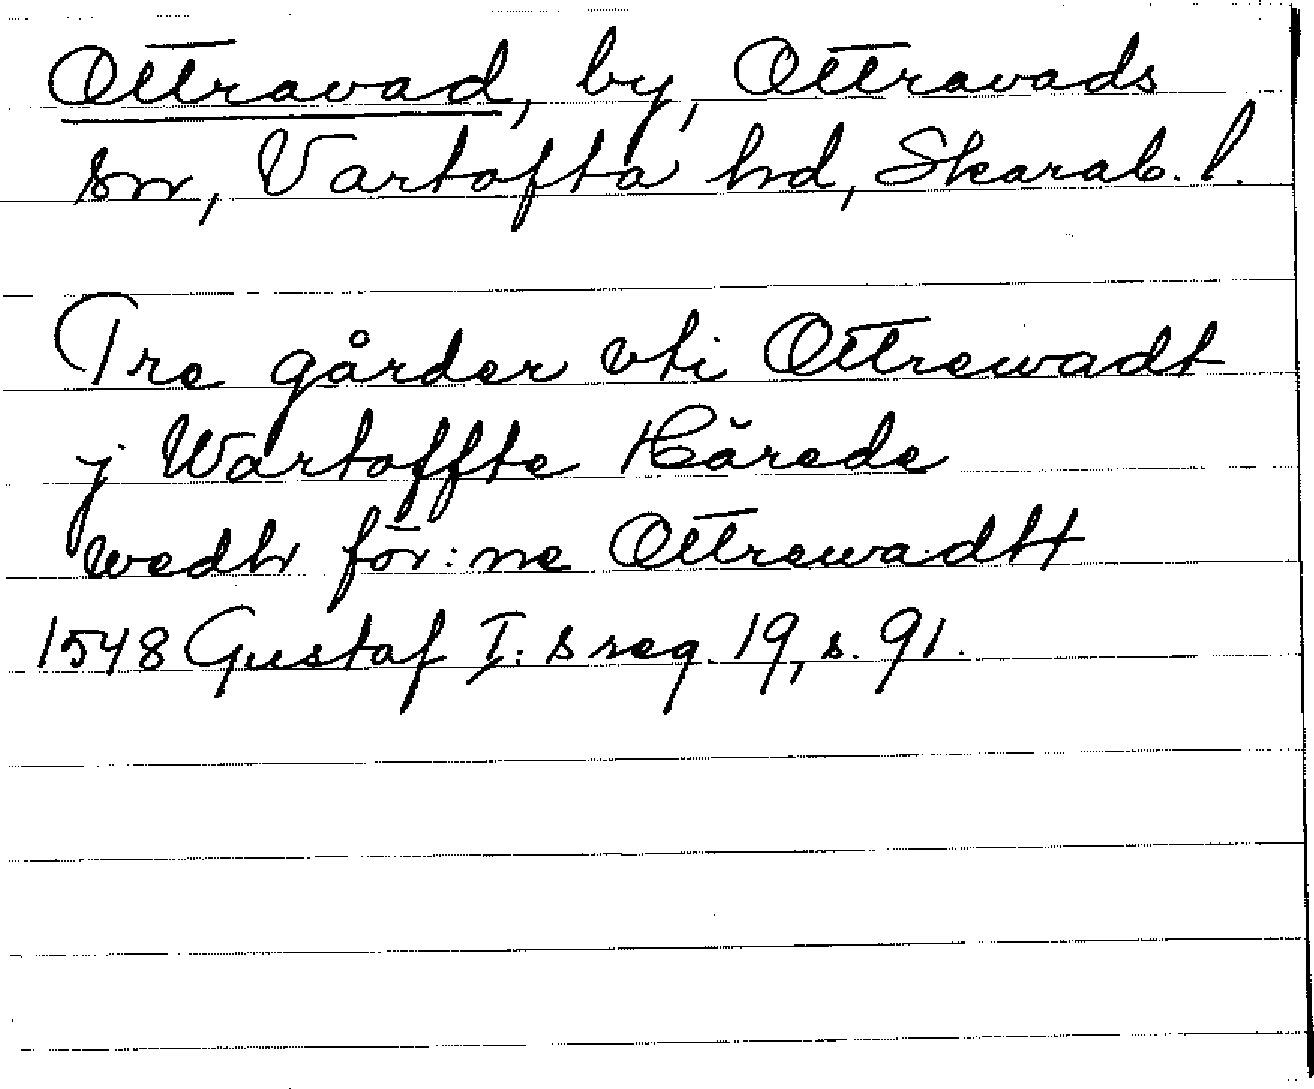 Ottravad, by, Ottravads
sn, Vartofta hd, Skarab. l.
Tre gårder vti Ottrewadt
j Wartoffte Härede
wedh för:ne Ottrewadtt
1548 Gustaf I:s reg. 19, s. 91.